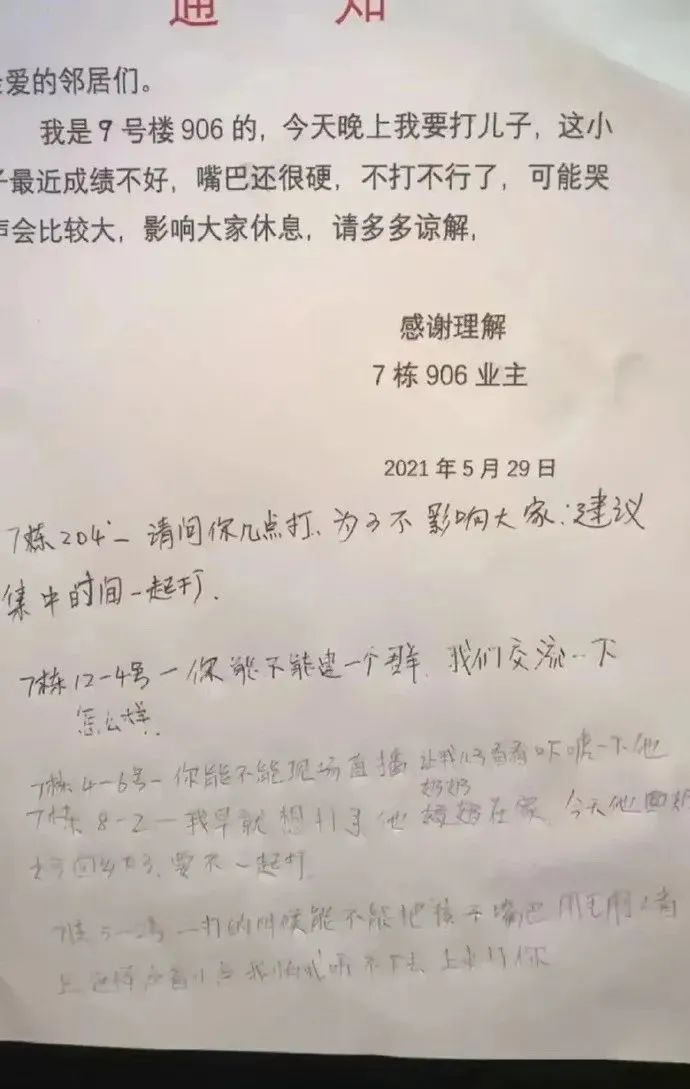 通知
爱的邻居们。
我是9号楼906的，今天晚上我要打儿子，这小
子最近成绩不好，嘴巴还很硬，不打不行了，可能哭
声会比较大，影响大家休息，请多多谅解，
感谢理解
7栋906业主
2021年5月29日
7栋204一请问你几点打、为了不影响大家：建议
集中时间一起打.
7栋12-4号一你能不能建一个群，我们交流一下
怎么样.
7栋4-6号-你能不能现场直播让我儿子看看吓唬一下他
奶奶
7栋8-2一我早就想打了他奶在家，今天他
回乡下了，要不一起打.
一打的时候能不能把孩子嘴巴用毛
上声音小点我怕我听不下去上来打你